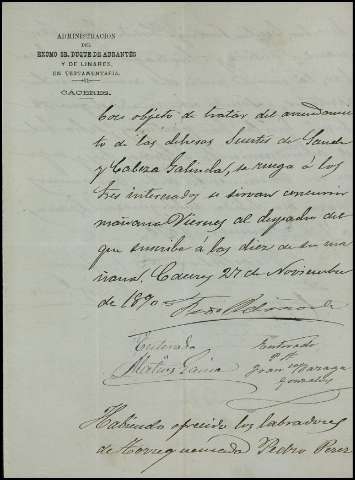 ADMINISTRACION
DEL
EXCMO. SR. DUQUE DE ABRANTÉS
Y DE LINARES,
EN TESTAMENTARÍA.
CÁCERES.
Con objeto de tratar del arrendamien
to de las dehesas Suertes de
y Cabeza Galindal, se ruega á los
tres interesados se sirvan concurrir
mañana Viernes al despacho del
que suscribe á las diez de su ma
ñana. Caceres 27 de Noviembre
de 1890
Enterado
Matías
Enterado
Juan
Gonzalez
Habiendo ofrecido los labradores
de Torrequemada Pedro Perez